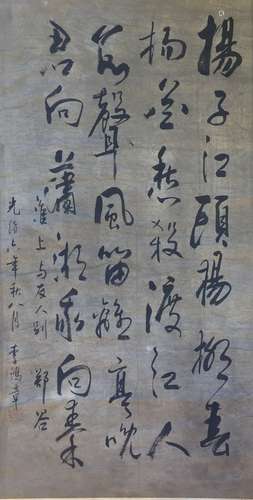 揚子江頭楊柳春
杨花愁殺渡江人
数聲風笛離亭晚
君向瀟湘我向秦
淮上与友人别 郑谷
光绪六年秋八月 李鴻章